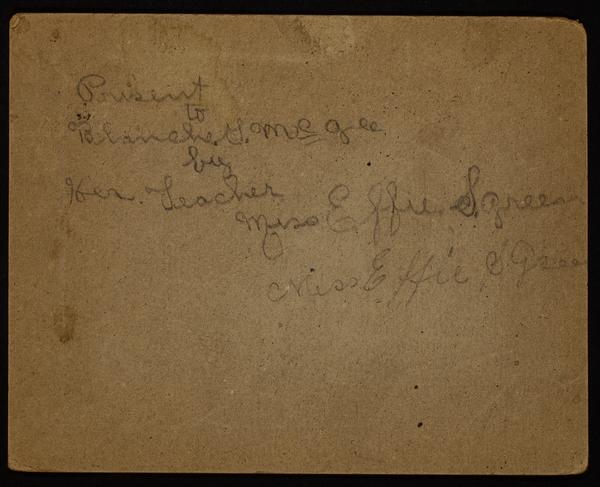 Present
to
Blanche. G. McGee
by
Her. Teacher
Miss Effie. S. green
Miss Effie S Green